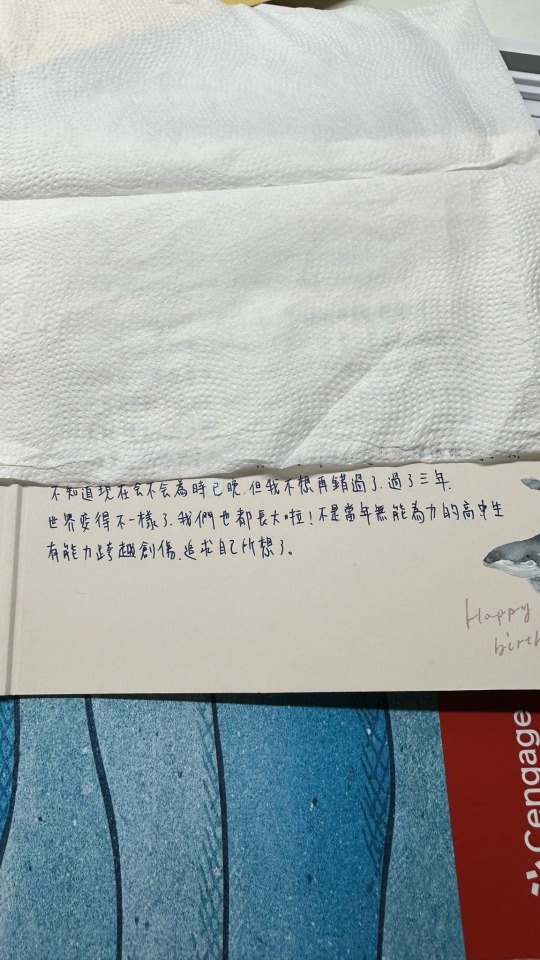 不知道現在会不会為時已晚，但我不想再錯過了．過了三年．
世界変得不一樣了．我們也都長大啦！不是當年無能為力的高中生
有能力跨越創傷，追求自己所想了。
Happy
birth
Cengage